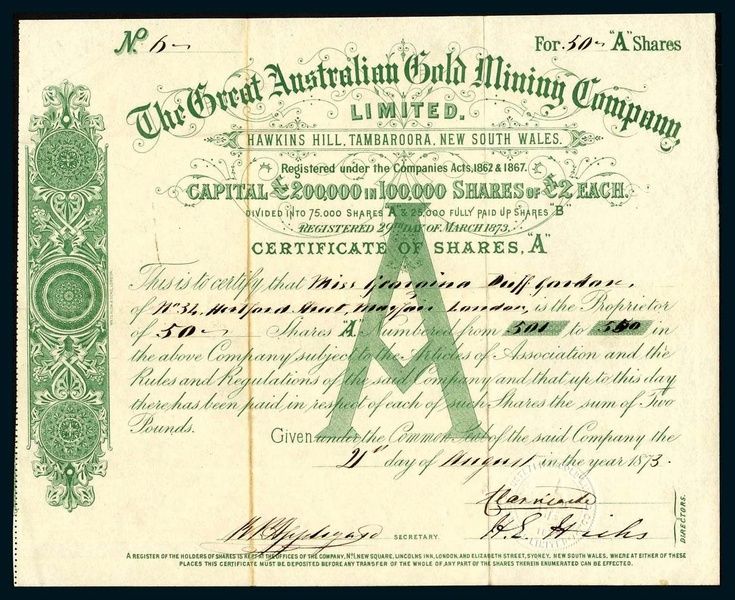 No. 6 For 50 "A" Shares
The Great Australian Gold Mining Company
LIMITED.
HAWKINS HILL, TAMBAROORA, NEW SOUTH WALES.
Registered under the Companies Acts, 1862 & 1867.
CAPITAL £200,000 IN 100,000 SHARES OF £2 EACH.
DIVIDED INTO 75.000 SHARES "A" & 25,000 FULLY PAID UP SHARES "B"
REGISTERED 29TH DAY OF MARCH 1873.
CERTIFICATE OF SHARES, "A"
This is to certify, that Miss Georgina Duff Gordon,
of No 34, Hertford Street, Mayfair London, is the Proprietor
of 50 Shares "A" Numbered from 501 to 550 in
the above Company subject to the Articles of Association and the
Rules and Regulations of the said Company and that up to this day
there has been paid in respect of each of such Shares the sum of Two
Pounds.
Given under the Common Seal of the said Company the
21st day of August in the year 1873.
H.E. Hicks
SECRETARY.
DIRECTORS.
A REGISTER OF THE HOLDERS OF SHARES IS KEPT AT THE OFFICES OF THE COMPANY, No 1, NEW SQUARE, LINCOLNS INN, LONDON, AND ELIZABETH STREET, SYDNEY, NEW SOUTH WALES, WHERE AT EITHER OF THESE
PLACES THIS CERTIFICATE MUST BE DEPOSITED BEFORE ANY TRANSFER OF THE WHOLE, OF ANY PART OF THE SHARES THEREIN ENUMERATED CAN BE EFFECTED.